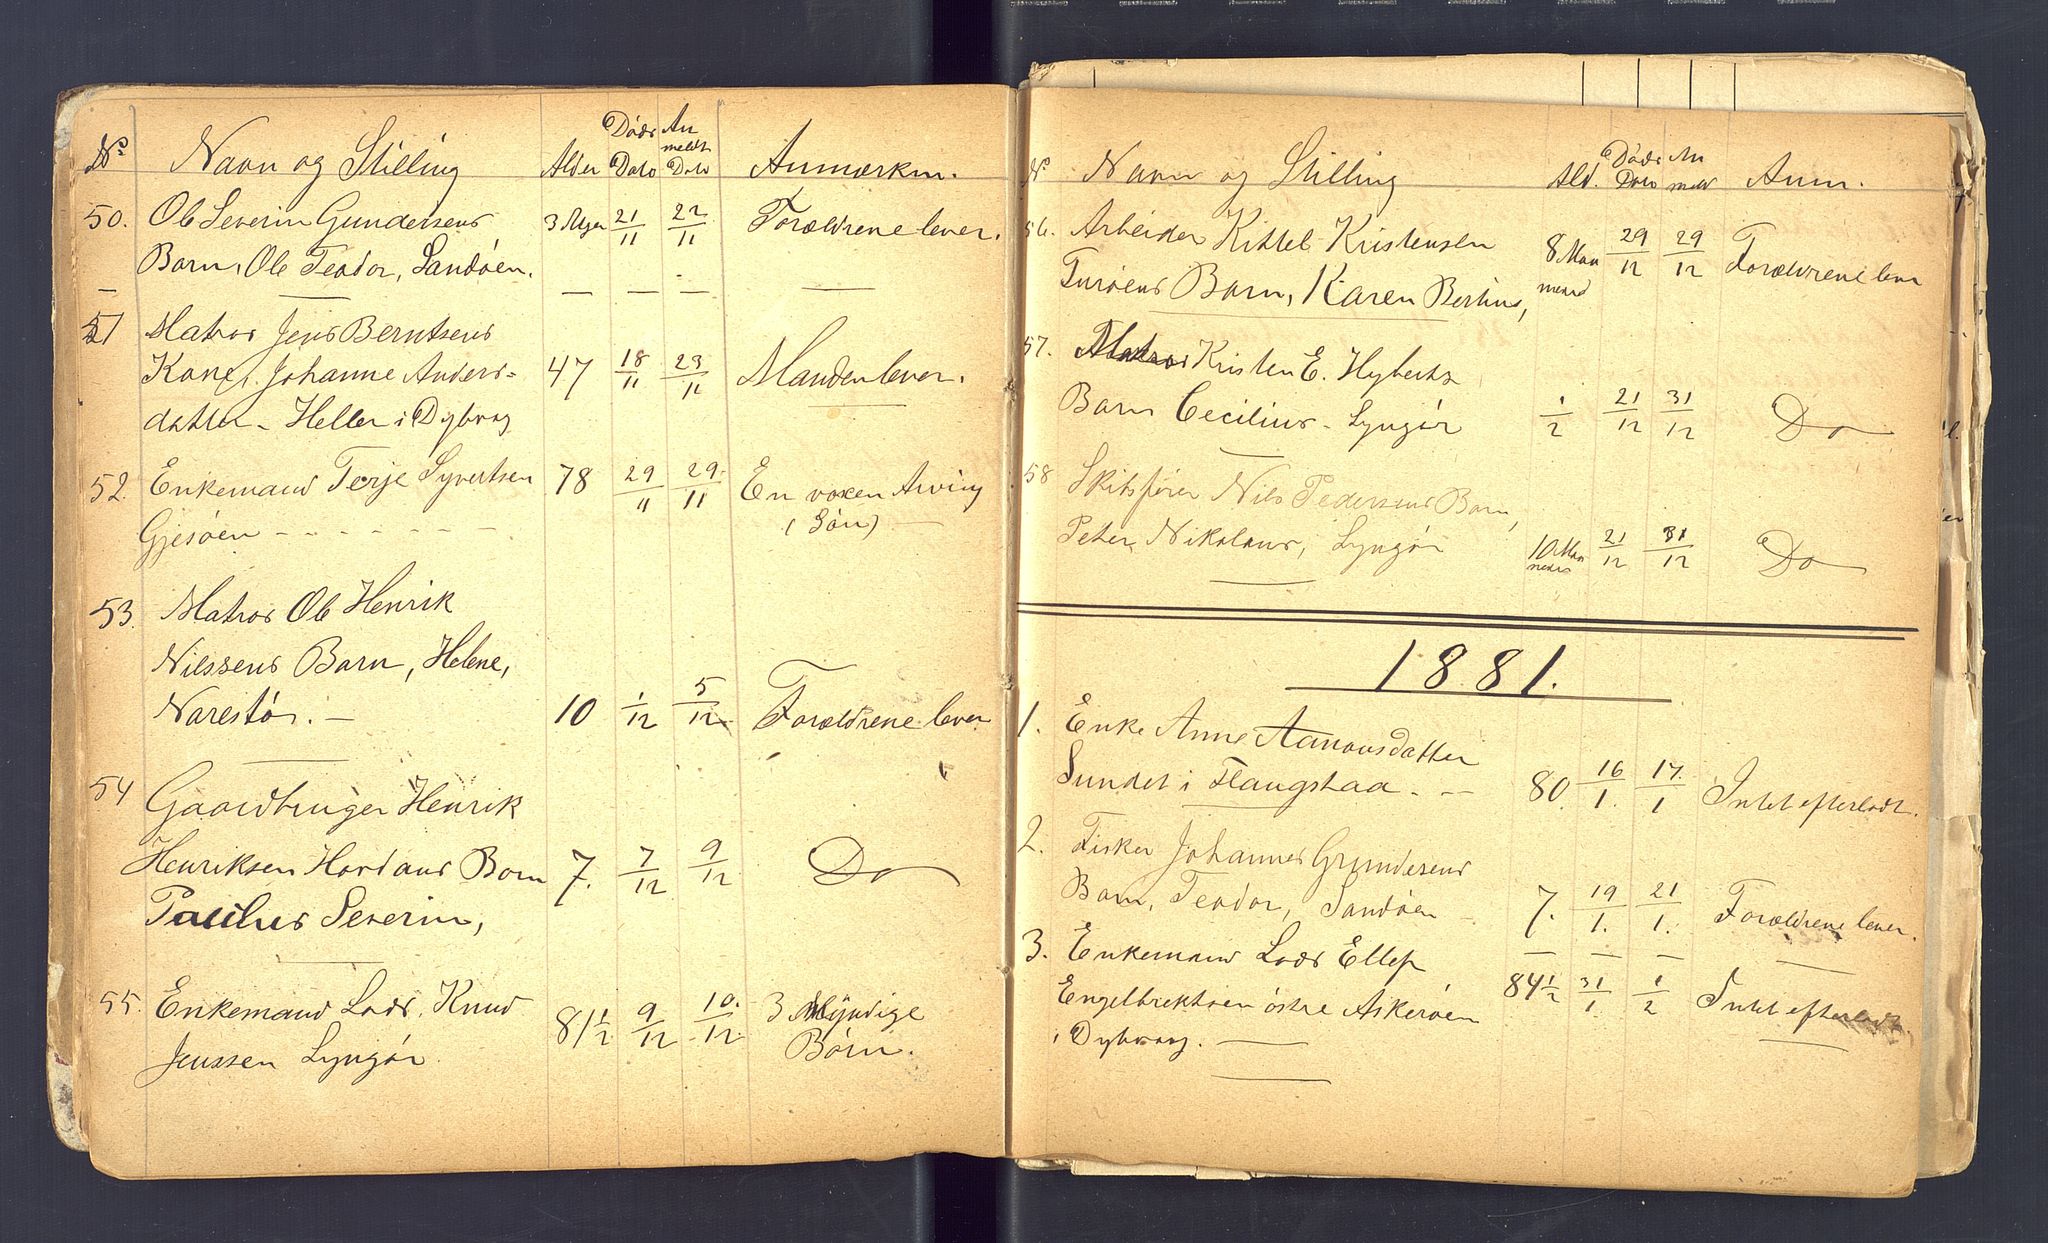 No Navn og Stilling Alder Døds Dato An meldt Dato Anmærkn.
50. Ole Severin Gundersens 3 Uger 21/11 22/11 Forældrene lever.
Barn, Ole Teodor, Sandøen.
51 Matros Jens Berntsens
Kone, Johanne Anders= 47 18/11 23/11 Manden lever.
datter - Heller i Dybvag
52. Enkemand Terje Syvertsen 78 29/11 29/11 En voxen Arving
Gjesøen - - - - - - (Søn)
53. Matros Ole Henrik
Nilssens Barn, Helene,
Narestø. - 10 1/12 5/12 Forældrene lever
54 Gaardbruger Henrik
Henriksen Hordans Barn 7. 7/12 9/12 Do
Paulus Severin,
55. Enkemand Lods. Knud 81 1/2 9/12 10./12 3 Myndige
Jenssen Lyngør. Børn.
No Navn og Stilling Ald. Døds Dato An meldt Anm.
56. Arbeider Kittel Kristensen 8 Maa 29/12 29/12 Forældrene lever
Furøens Barn, Karen Bertine, neder
57. Matros Kristen E. Hyberts
Barn Cecilius - Lyngør 1/2 21/12 31/12 Do
58 Skibsfører Nils Pedersens Barn,
Peter Nikolaus, Lyngør 10 Maa neder 21/12 31/12 Do
1881.
1. Enke Anne Aanonsdatter
Sundet i Flangstaa. - - 80. 16/1. 17./1 Intet efterladt.
2. Fisker Johannes Gundersens
Barn, Teodor, Sandøen - 7. 19/1. 21/1. Forældrene lever.
3. Enkemand Lods Ellef
Engelbrektsen østre Askerøen 84 1/2 31/1 1/2 Intet efterladt.
i Dybvag.